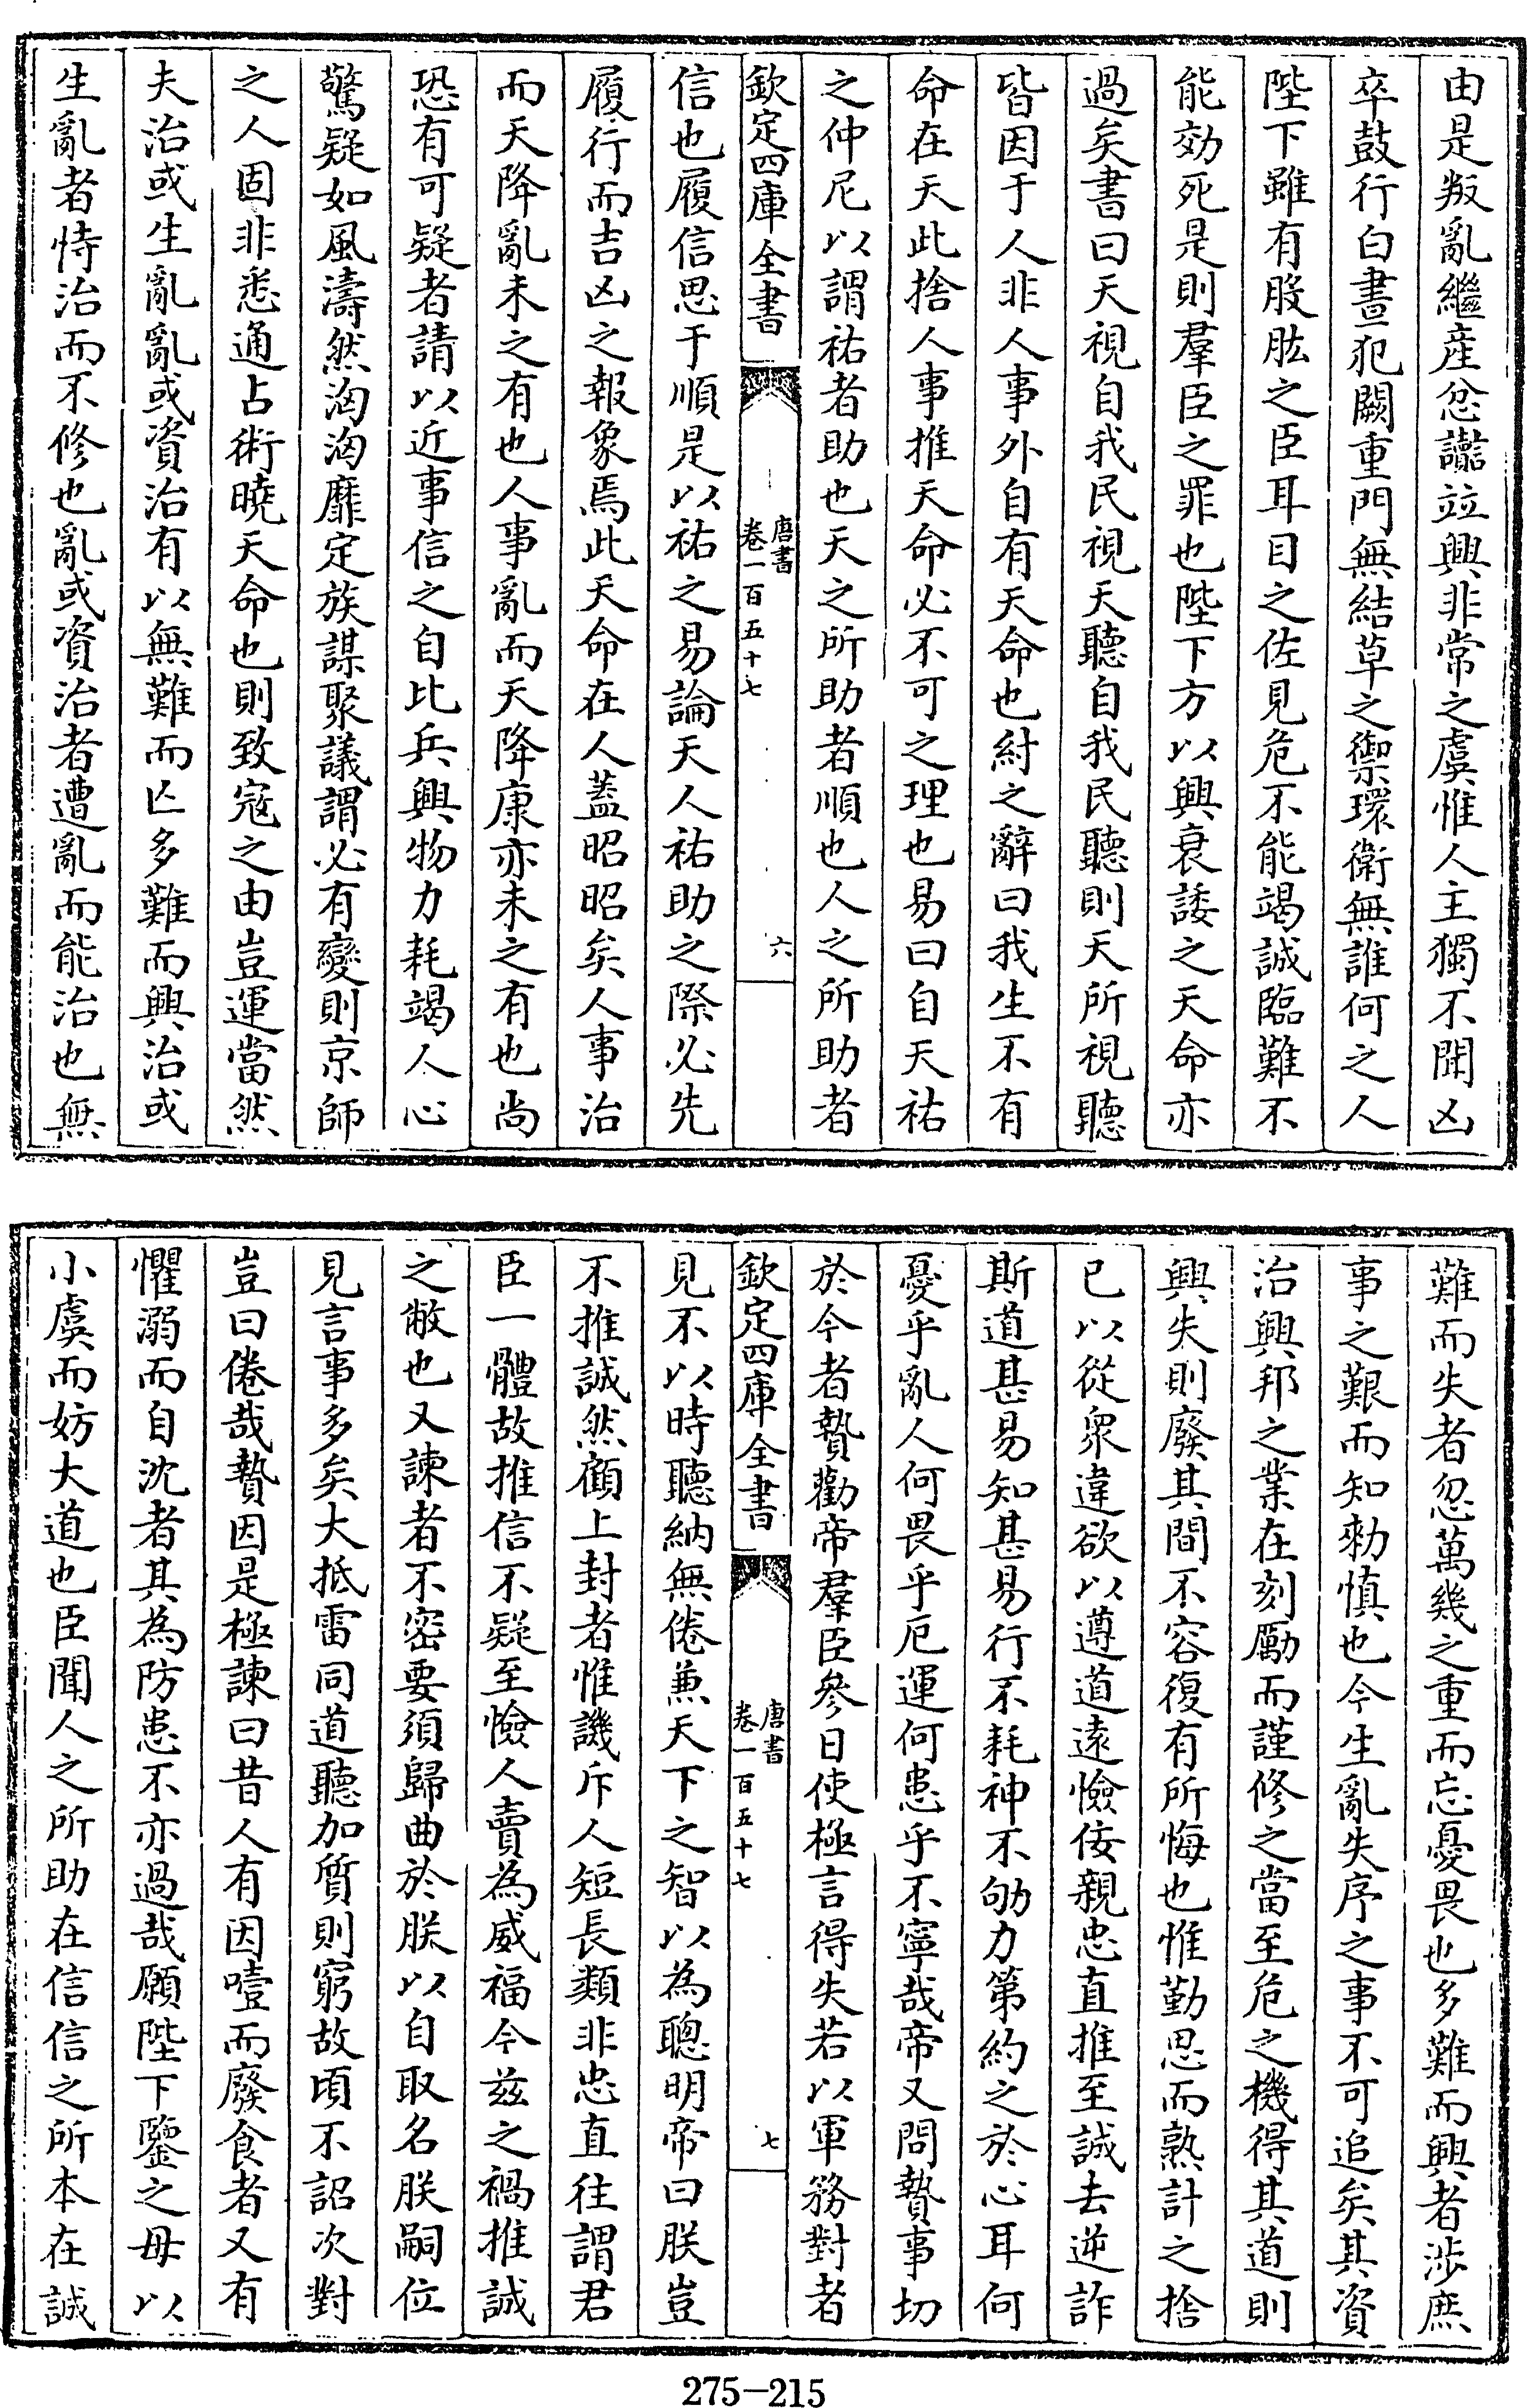 由是叛亂繼産忿讟竝興非常之虞惟人主獨不聞凶
卒鼓行白晝犯闕重門無結草之禦環衛無誰何之人
陛下雖有股肱之臣耳目之佐見危不能竭誠臨難不
能効死是則羣臣之罪也陛下方以興衰諉之天命亦
過矣書曰天視自我民視天聽自我民聽則天所視聽
皆因于人非人事外自有天命也紂之辭曰我生不有
命在天此捨人事推天命必不可之理也易曰自天祐
之仲尼以謂祐者助也天之所助者順也人之所助者
欽定四庫全書 唐書卷一百五十七 六
信也履信思于順是以祐之易論天人祐助之際必先
履行而吉凶之報象焉此天命在人蓋昭昭矣人事治
而天降亂未之有也人事亂而天降康亦未之有也尚
恐有可疑者請以近事信之自比兵興物力耗竭人心
驚疑如風濤然洶洶靡定族謀聚議謂必有變則京師
之人固非悉通占術曉天命也則致寇之由豈運當然
夫治或生亂亂或資治有以無難而亾多難而興治或
生亂者恃治而不修也亂或資治者遭亂而能治也無
難而失者忽萬幾之重而忘憂畏也多難而興者涉庶
事之艱而知勑慎也今生亂失序之事不可追矣其資
治興邦之業在刻勵而謹修之當至危之機得其道則
興失則廢其間不容復有所悔也惟勤思而熟計之捨
已以從衆違欲以遵道遠憸佞親忠直推至誠去逆詐
斯道甚易知甚易行不耗神不劬力第約之於心耳何
憂乎亂人何畏乎厄運何患乎不寧哉帝又問贄事切
於今者贄勸帝羣臣參日使極言得失若以軍務對者
欽定四庫全書 唐書卷一百五十七 七
見不以時聽納無倦兼天下之智以為聰明帝曰朕豈
不推誠然顧上封者惟譏斥人短長類非忠直往謂君
臣一體故推信不疑至憸人賣為威福今兹之禍推誠
之敝也又諫者不密要須歸曲於朕以自取名朕嗣位
見言事多矣大抵雷同道聽加質則窮故頃不詔次對
豈曰倦哉贄因是極諫曰昔人有因噎而廢食者又有
懼溺而自沈者其為防患不亦過哉願陛下鑒之毋以
小虞而妨大道也臣聞人之所助在信信之所本在誠
275-215